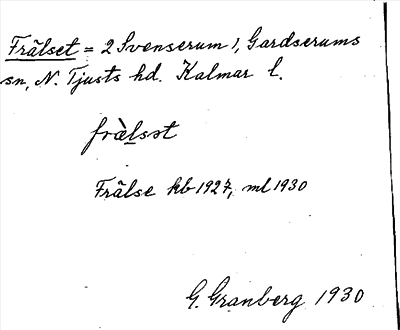 Frälset = 2 Svenserum 1, Gardserums
sn, N. Tjusts hd. Kalmar l.
frὰlsst
Frälse kb 1927, ml 1930
G. Granberg 1930